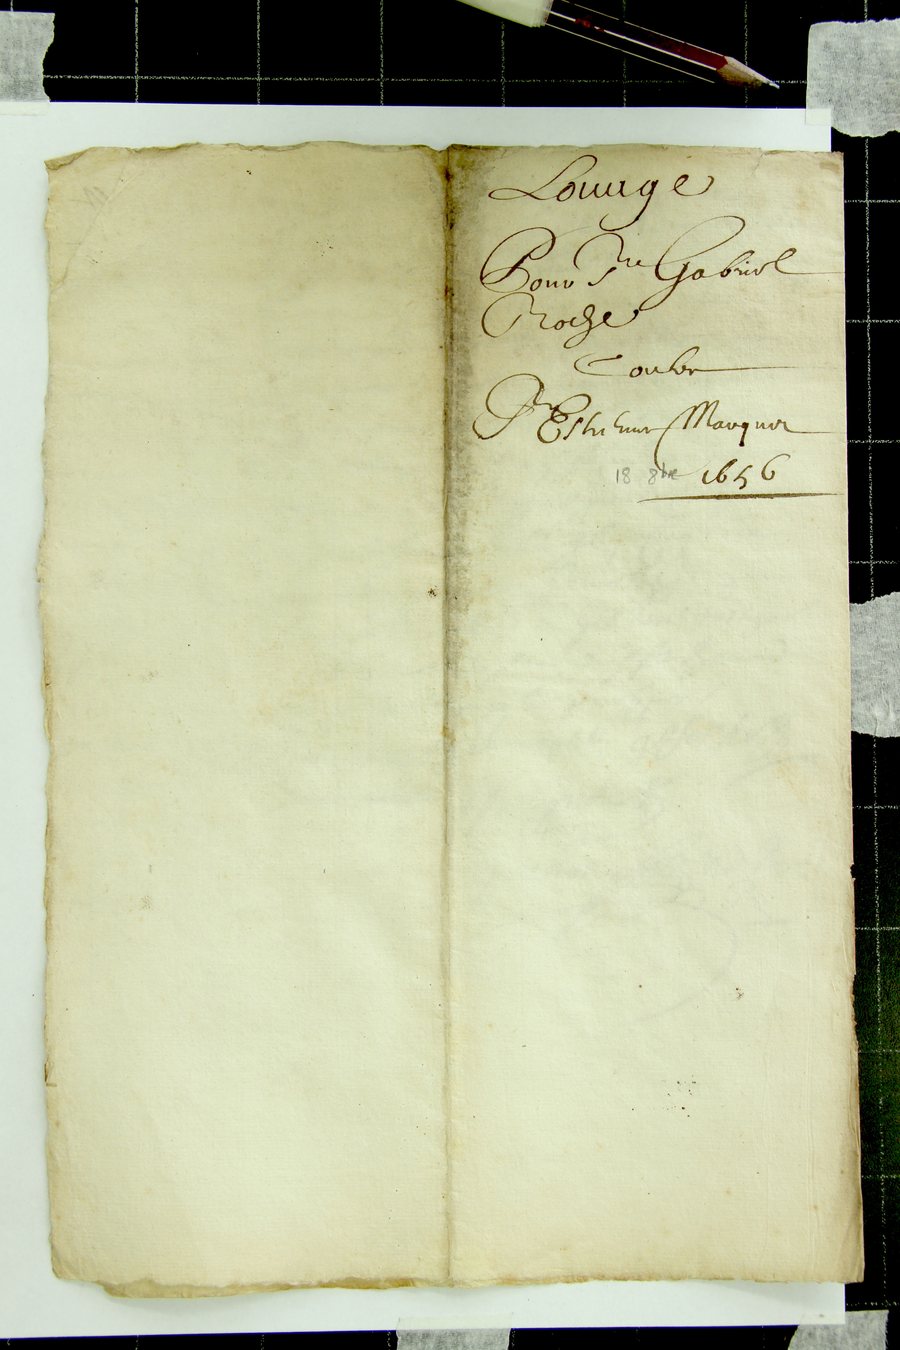 Louuage
Pour Sre Gabriel
Roche
Contre
Sr Estienne Marquer
18 8bre 1656